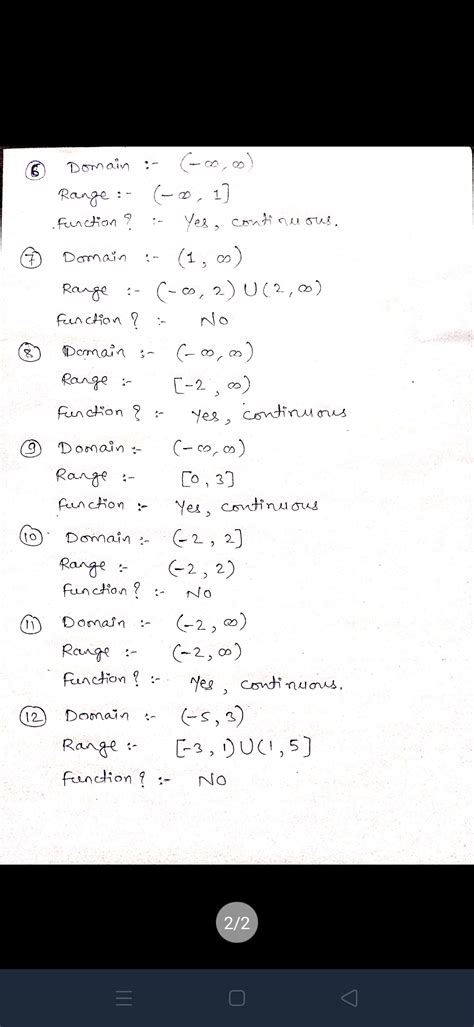 6 Domain :- (-∞, ∞)
Range :- (-∞, 1]
Function? :- Yes, continuous.
7 Domain :- (1, ∞)
Range :- (-∞, 2) U (2, ∞)
Function? :- No
8 Domain :- (-∞, ∞)
Range :- [-2, ∞)
Function? :- Yes, continuous
9 Domain :- (-∞, ∞)
Range :- [0, 3]
Function :- Yes, continuous
10 Domain :- (-2, 2]
Range :- (-2, 2)
Function? :- No
11 Domain :- (-2, ∞)
Range :- (-2, ∞)
Function? :- Yes, continuous.
12 Domain :- (-5, 3)
Range :- [-3, 1) U (1, 5]
Function? :- No
2/2